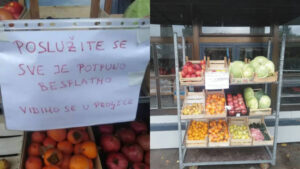 POSLUŽITE SE
SVE JE POTPUNO
BESPLATNO
VIDIMO SE U PROLJEĆE